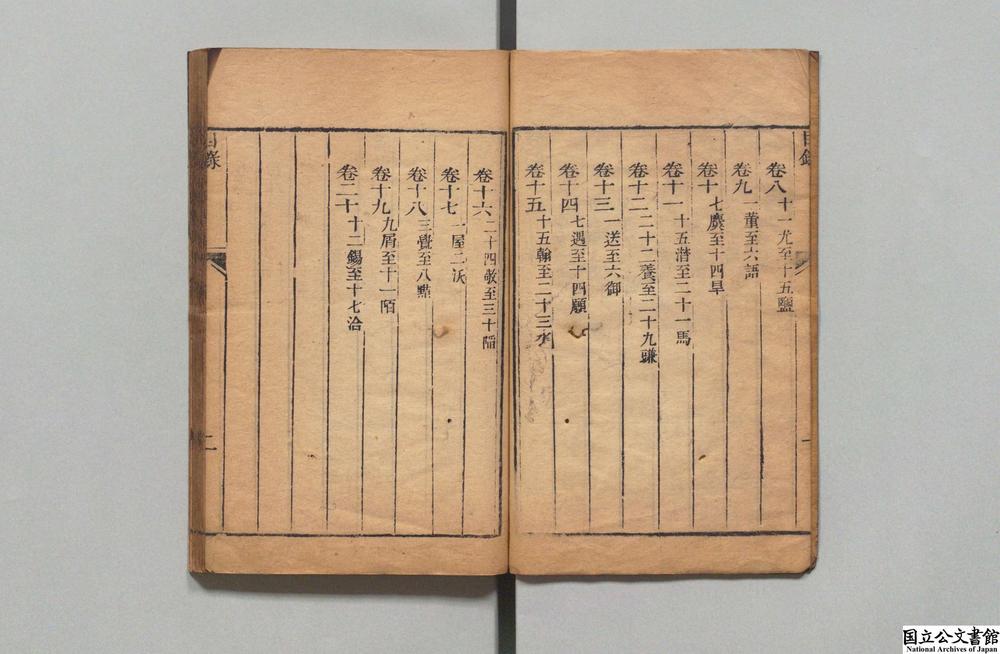 目錄
卷八 十一尤至十五鹽
卷九 一董至六語
卷十 七麌至十四旱
卷十一 十五潸至二十一馬
卷十二 二十二養至二十九豏
卷十三 一送至六御
卷十四 七遇至十四願
卷十五 十五翰至二十三
卷十六 二十四敬至三十陷
卷十七 一屋二沃
卷十八 三覺至八黠
卷十九 九屑至十一陌
卷二十 十二錫至十七洽
目錄
二
国立公文書館
National Archives of Japan